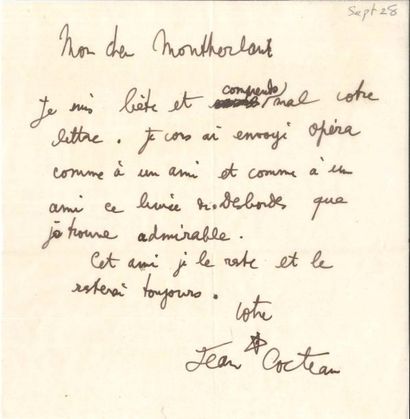 Sept 28
Mon cher Montherlant
Je suis bête et comprends mal votre
lettre. Je vous ai envoyé opéra
comme à un ami et comme à un
ami ce livre de Desbordes que
je trouve admirable.
Cet ami je le reste et le
resterai toujours.
Votre
Jean Cocteau